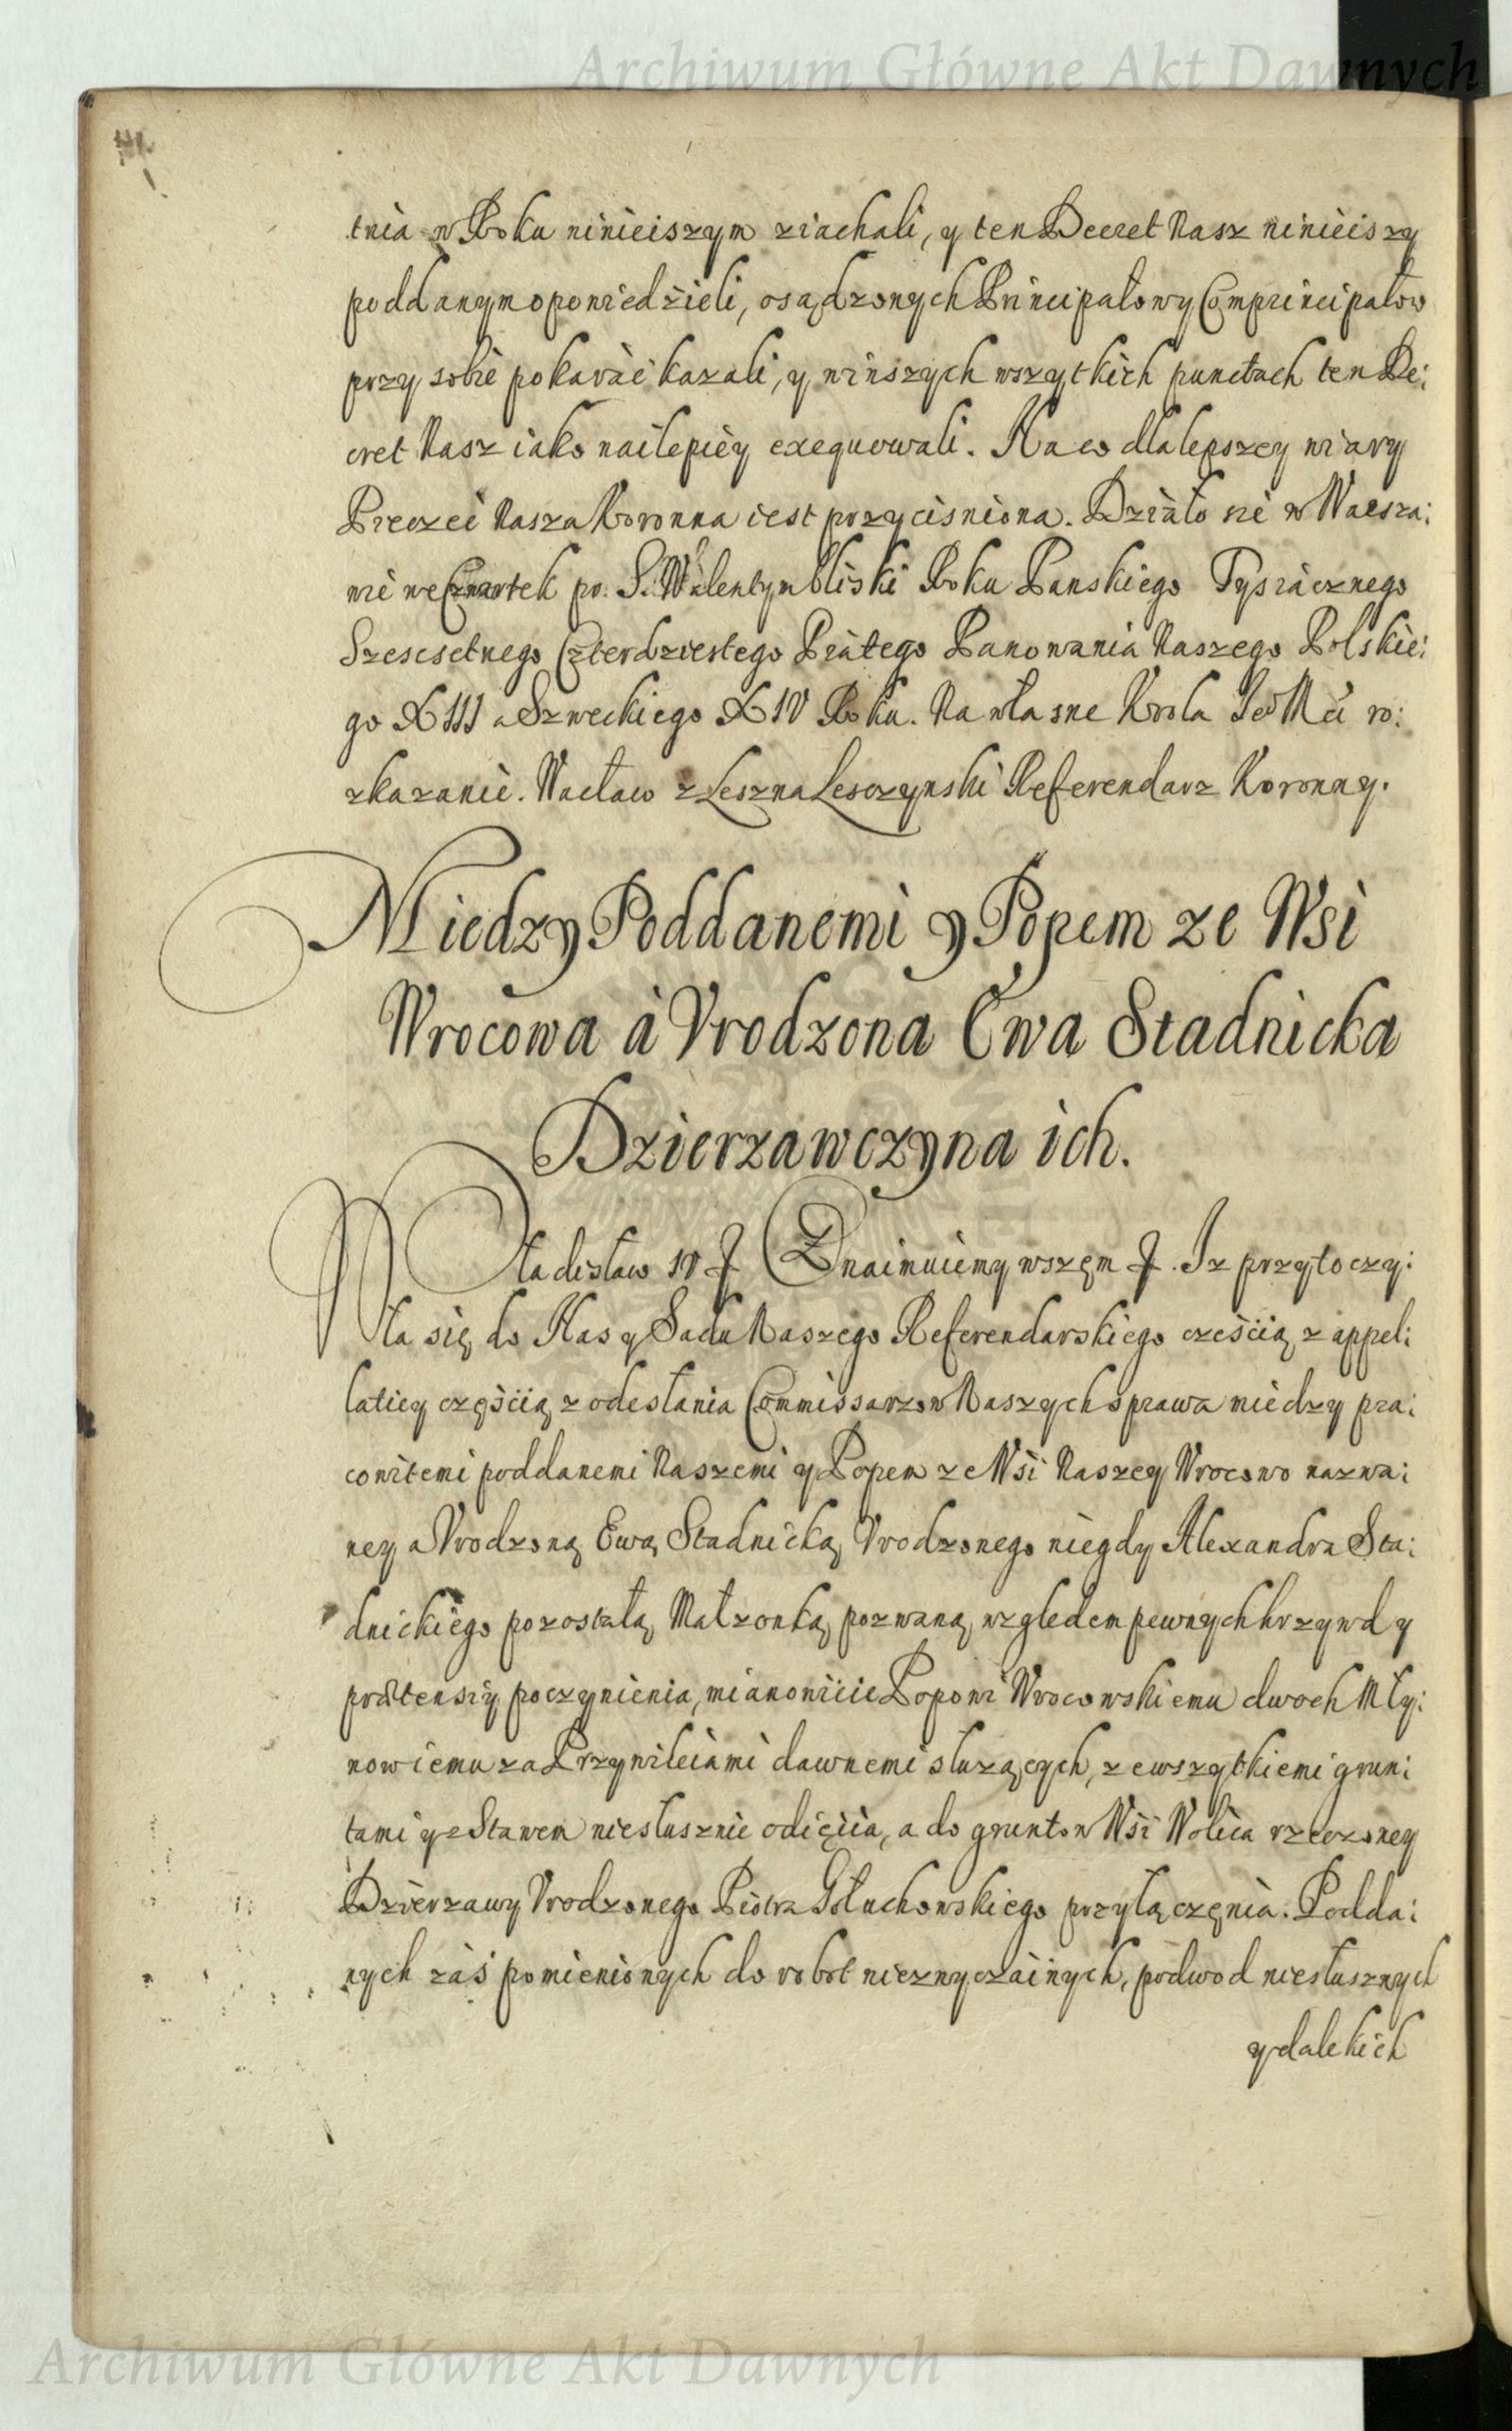 Archiwum Główne Akt Dawnych
tnia w Roku ninieiszym ziachali, y ten Decret Nasz ninieiszy
poddanym opowiedzieli, osądzonych Principałow y Comprincipałow
przy sobie pokaràć kazali, y w inszych wszytkich punctach ten De:
cret Nasz iako nailepiey exequowali. Na co dla lepszey wiary
Pieczęć Nasza Koronna iest przyciśniona. Działo się w Warsza:
wie we Czwartek po S. Walentym bliski Roku Panskiego Tysiącznego
Szescsetnego Czterdziestego Piątego Panowania Naszego Polskie:
go XIII a Szweckiego XIV Roku. Na własne Krola Je° Mći ro:
zkazanie. Wacław z Leszna Lesczynski Referendarz Koronny.
Miedzy Poddanemi y Popem ze Wsi
Wrocowa à Vrodzona Ewa Stadnicka
Dzierzawczyna ich.
Władisław IV Znaimuiemy wszem. Iz przytoczy:
ła się do Nas y Sadu Naszego Referendarskiego cześcią z appel:
latiey częścią z odesłania Commissarzow Naszych sprawa miedzy pra:
cowitemi poddanemi Naszemi y Popem ze Wsi Naszey Wrocowo nazwa:
ney a Vrodzoną Ewą Stadnicką Vrodzonego niegdy Alexandra Sta:
dnickiego pozostałą Małzonką pozwaną względem pewnych krzywd y
prætensiy poczynienia, mianowicie Popowi Wrocowskiemu dwoch Mły:
now iemu za Przywileiami dawnemi służących, ze wszytkiemi grun:
tami y ze Stawem niesłusznie odięcia, a do gruntow Wsi Wolica rzeczoney
Dzierzawy Vrodzonego Piotra Gołuchowskiego przyłączęnia. Podda:
nych zaś pomienionych do robot niezwyczainych, podwod niesłusznych
y dalekich
Archiwum Główne Akt Dawnych